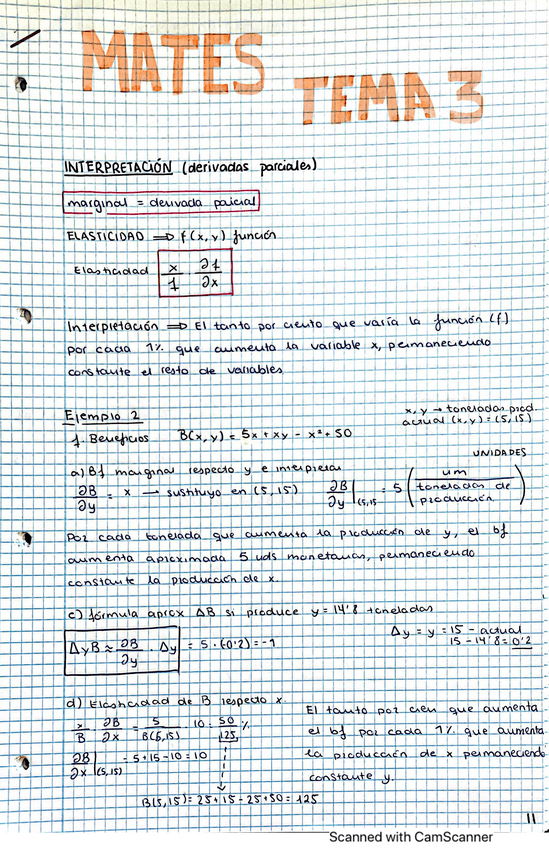 MATES
TEMA 3
INTERPRETACIÓN (derivadas parciales)
marginal = derivada parcial
ELASTICIDAD ⟹ f(x,y) función
Elasticidad x/f · ∂f/∂x
Interpretación ⟹ El tanto por ciento que varía la función (f)
por cada 1% que aumenta la variable x, permaneciendo
constante el resto de variables
Ejemplo 2
x, y → toneladas prod.
actual (x,y) = (5,15)
f. Beneficios B(x,y) = 5x + xy - x² + 50
UNIDADES
a) Bf marginal respecto y e interpretar
∂B/∂y = x → sustituyo en (5,15) ∂B/∂y |(5,15 = 5 (um / toneladas de producción)
Por cada tonelada que aumenta la producción de y, el bf
aumenta aproximada 5 uds monetarias, permaneciendo
constante la producción de x.
c) fórmula aprox ΔB si produce y = 14'8 toneladas
ΔyB ≈ ∂B/∂y · Δy = 5 · (-0'2) = -1
Δy = y = 15 - actual
15 - 14'8 = 0'2
d) Elasticidad de B respecto x.
x/B ∂B/∂x = 5/B(5,15) · 10 = 50/125 %
∂B/∂x |(5,15) = 5 + 15 - 10 = 10
B(5,15) = 25 + 15 - 25 + 50 = 125
El tanto por cien que aumenta
el bf por cada 1% que aumenta
la producción de x permaneciendo
constante y.
11
Scanned with CamScanner